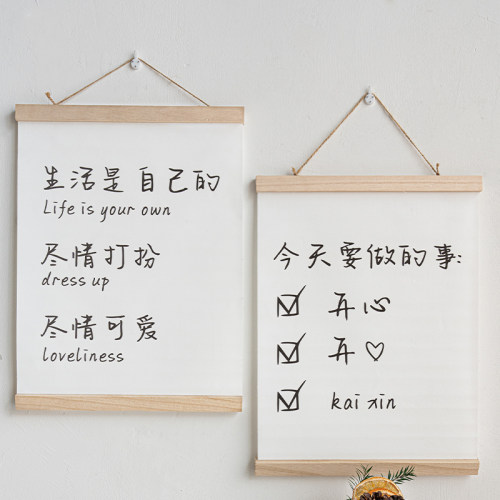 生活是自己的
Life is your own
尽情打扮
dress up
尽情可爱
loveliness
今天要做的事:
开心
开♡
kai xin